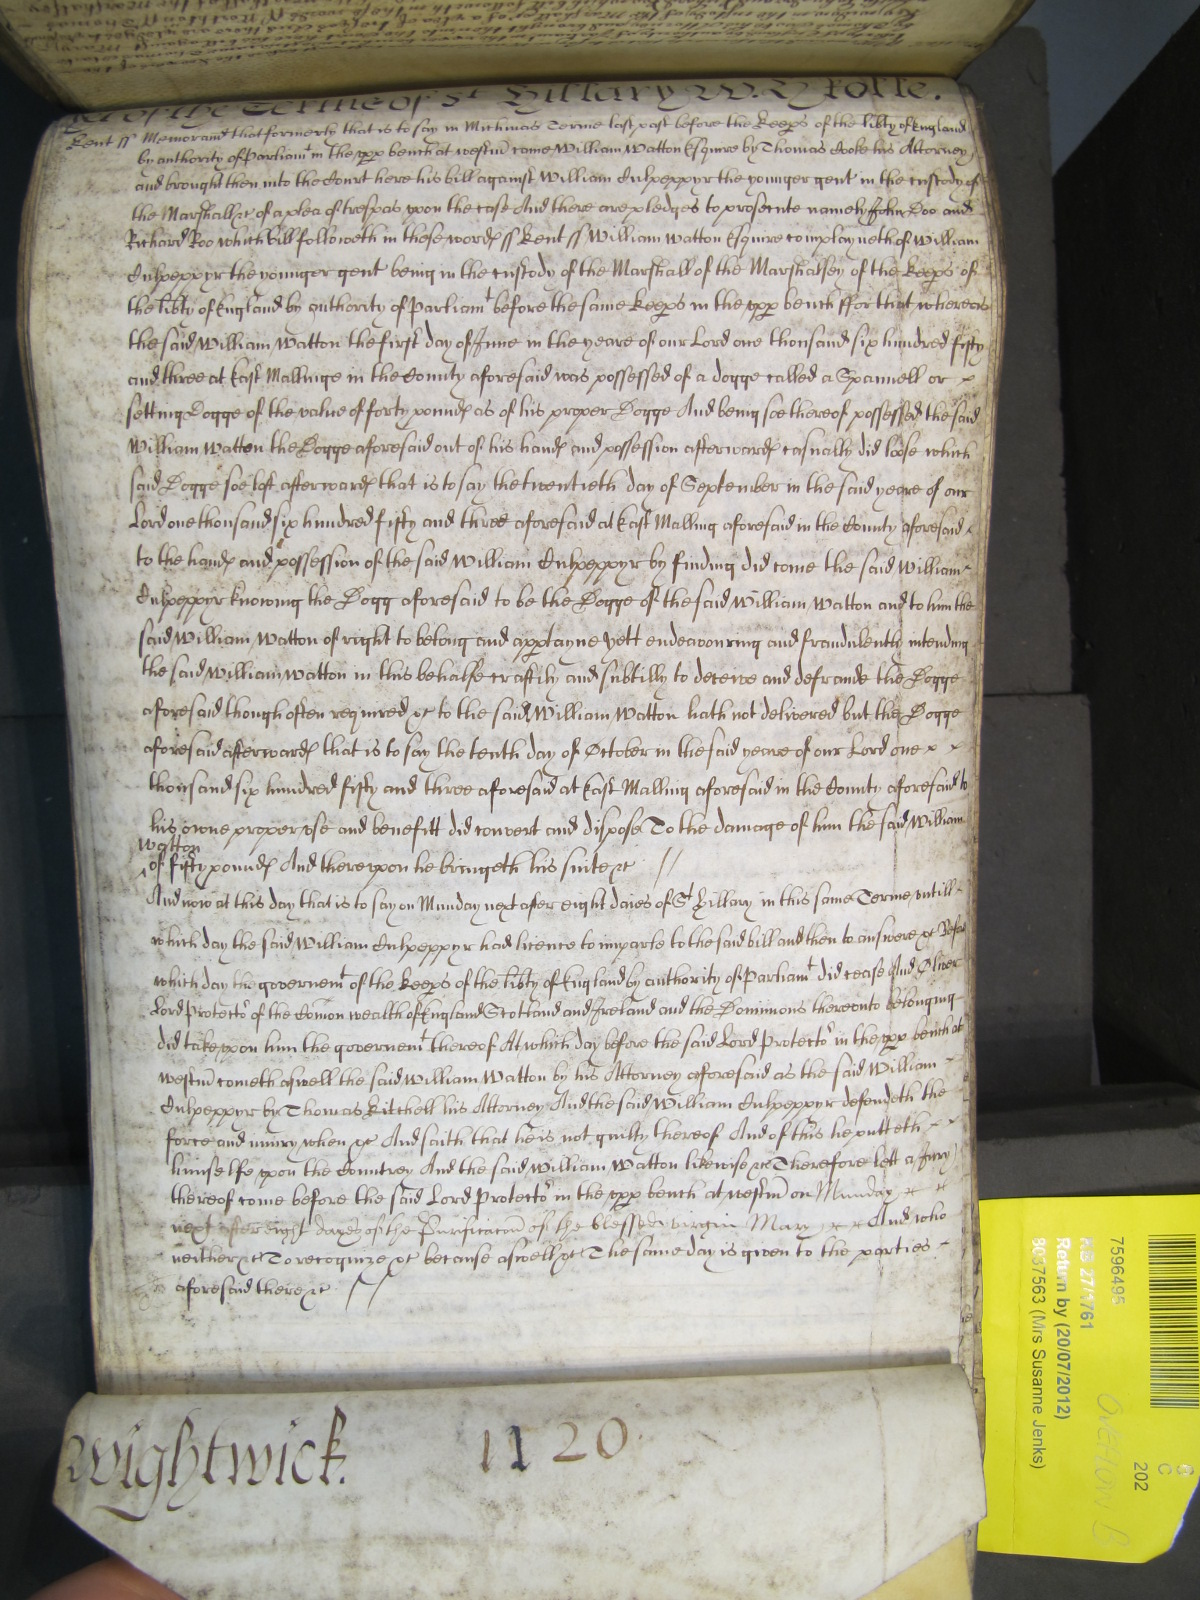 of the Terme of St Hillary W. Rolle.
Kent ss Memorand that formerly that is to say in Michmas Terme last past before the Keeps of the libty of England
by authority of Parliamt in the upp bench at westm came William Watton Esquire by Thomas Cooke his Attorney
and brought then into the Court here his bill against William Culpeppyr the younger gent in the custody of
the Marshall &c of a plea of trespas upon the case And there are pledges to prosecute namely John Doo and
Richard Roo which bill followeth in these words ss Kent ss William Watton Esquire complayneth of William
Culpeppyr the younger gent being in the custody of the Marshall of the Marshalsey of the Keeps of
the libty of England by authority of Parliamt before the same Keeps in the upp bench ffor that whereas
the said William Watton the first day of June in the yeare of our Lord one thousand six hundred fifty
and three at East Mallinge in the County aforesaid was possessed of a dogge called a Spannell or
setting Dogge of the value of forty pounds as of his proper Dogge And being soe thereof possessed the said
William Watton the Dogge aforesaid out of his hands and possession afterwards casually did loose which
said Dogge soe lost afterwards that is to say the twentieth day of September in the said yeare of our
Lord one thousand six hundred fifty and three aforesaid at East Malling aforesaid in the County aforesaid
to the hands and possession of the said William Culpeppyr by finding did come the said William
Culpeppyr knowing the Dogg aforesaid to be the Dogge of the said William Watton and to him the
said William Watton of right to belong and apptayne yett endeavouring and fraudulently intending
the said William Watton in this behalfe craftily and subtilly to deceive and defraude the Dogge
aforesaid though often required &c to the said William Watton hath not delivered but the Dogge
aforesaid afterwards that is to say the tenth day of October in the said yeare of our Lord one
thousand six hundred fifty and three aforesaid at East Malling aforesaid in the County aforesaid to
his owne proper use and benefitt did convert and dispose To the damage of him the said William
Watton
of fifty pounds And thereupon he bringeth his suite &c //
And now at this day that is to say on Munday next after eight daies of St Hillary in this same Terme untill
which day the said William Culpeppyr had licence to imparle to the said bill and then to answere &c Before
which day the governemt of the Keeps of the libty of England by authority of Parliamt did cease And Oliver
Lord Protector of the Comon wealth of England Scotland and Ireland and the Dominions thereunto belonging
did take upon him the governemt thereof At which day before the said Lord Protector in the upp bench at
westm cometh aswell the said William Watton by his Attorney aforesaid as the said William
Culpeppyr by Thomas Kitchell his Attorney And the said William Culpeppyr defendeth the
force and iniury when &c And saith that he is not guilty thereof And of this he putteth
himselfe upon the Countrey And the said William Watton likewise &c Therefore lett a Jury
thereof come before the said Lord Protector in the upp bench at westm on Munday
next after eight dayes of the Purificacon of the blessed virgin Mary And who
neither &c To recognize &c because aswell &c The same day is given to the parties
aforesaid there &c //
Wightwick. 1120
7596495
27/1761
Return by (20/07/2012)
8037563 (Mrs Susanne Jenks)
C
202